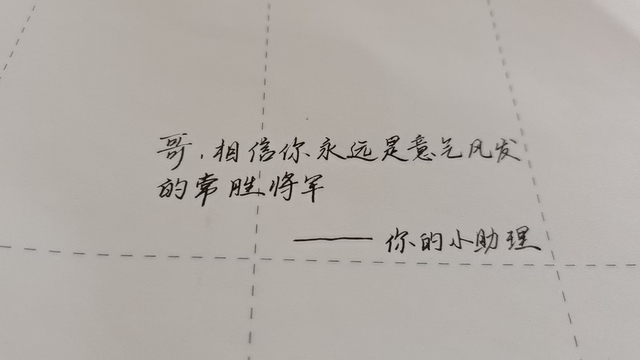 哥,相信你永远是意气风发
的常胜将军
——你的小助理